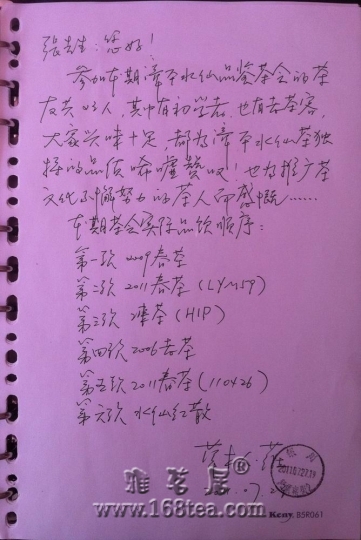 张先生：您好！
参加本期漳平水仙品鉴茶会的茶
友共10人，其中有初学者，也有老茶客，
大家兴味十足，都为漳平水仙茶独
特的品质唏嘘赞叹！也为推广茶
文化不懈努力的茶人而感慨……
本期茶会实际品饮顺序：
第一款 2009春茶
第二款 2011春茶（LYMSY）
第三款（HIP）
第四款 2006老茶
第五款 2011春茶（110426）
第六款 水仙红散
雅茗居
www.168tea.com
Keny B5R061